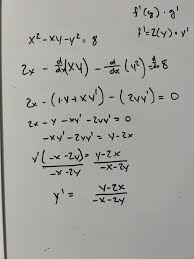 f'(y) · y'
f' = 2(y) · y'
x² - xy - y² = 8
2x - d/dx(xy) - d/dx(y²) = d/dx 8
2x - (1·y + xy') - (2yy') = 0
2x - y - xy' - 2yy' = 0
-xy' - 2yy' = y - 2x
y'(-x - 2y) = y - 2x
-x - 2y -x - 2y
y' = y - 2x
-x - 2y